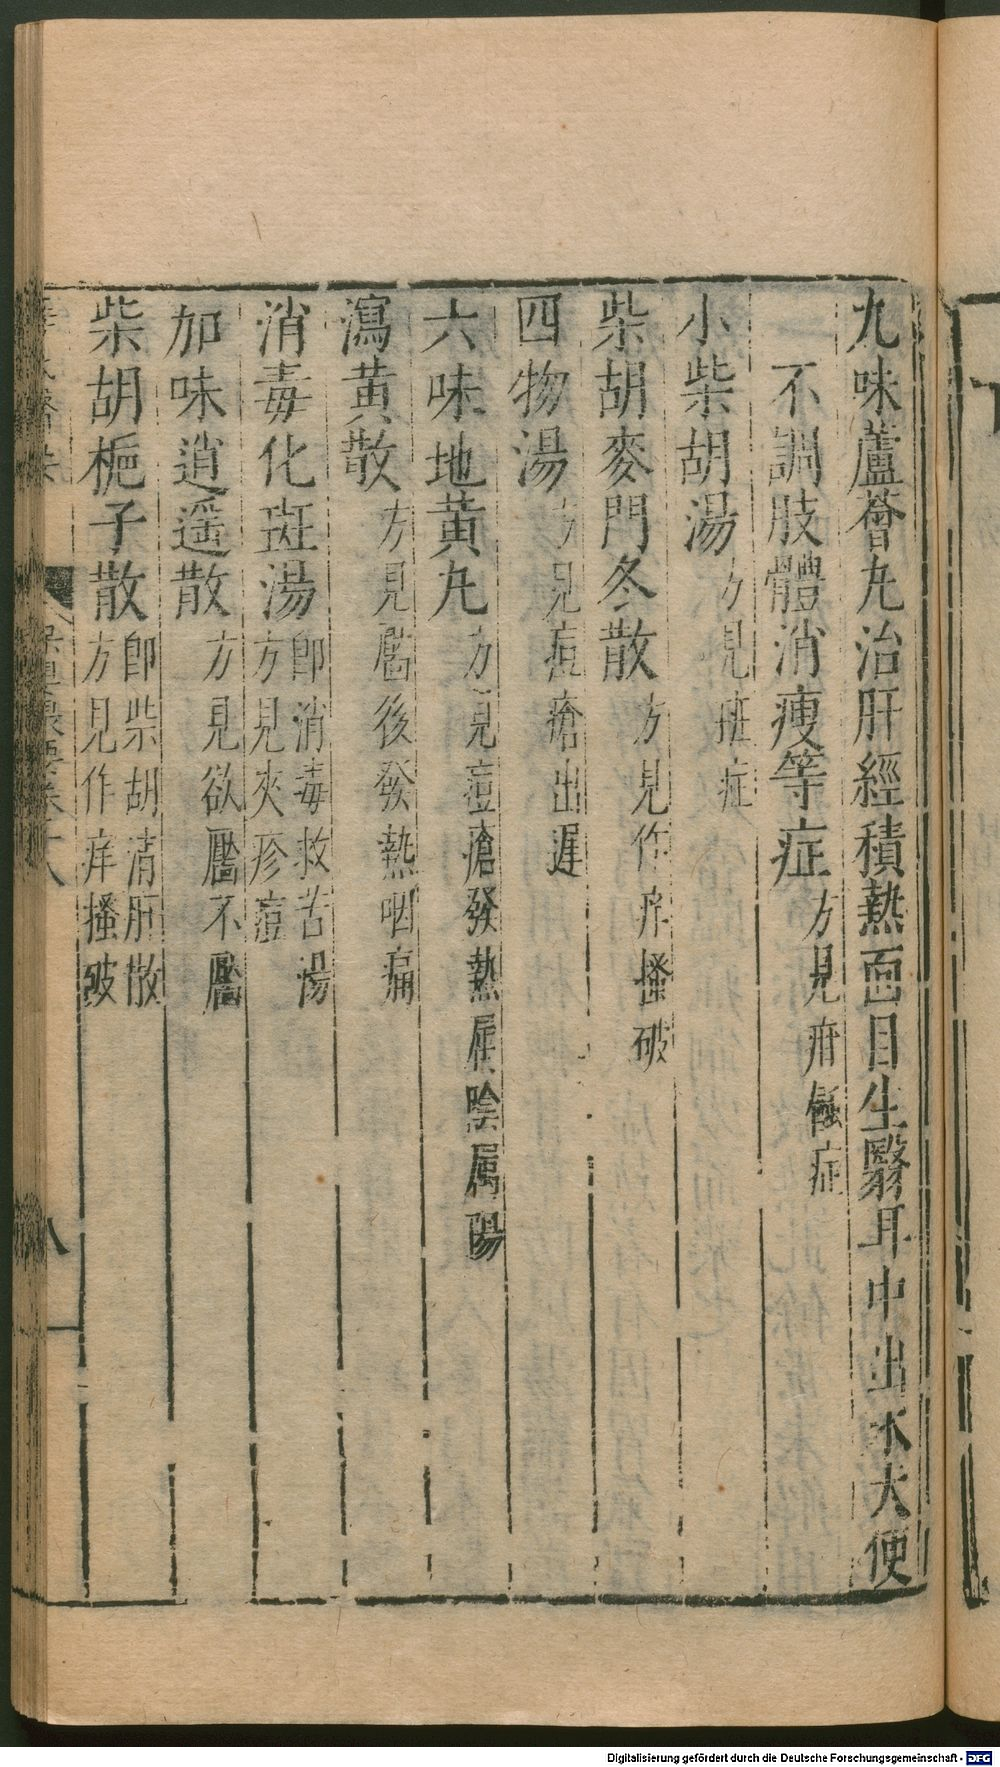 九味蘆薈丸治肝經積熱面目生翳耳中出水大便
不調肢體消瘦等症方見疳傷症
小柴胡湯方見斑症
柴胡麥門冬散方見作痒搔破
四物湯方見痘瘡出遲
六味地黃丸方見痘瘡發熱屬陰屬陽
瀉黃散方見靨後發熱咽痛
消毒化斑湯即消毒救苦湯
方見夾疹痘
加味逍遥散方見欲靨不靨
柴胡梔子散即柴胡清肝散
方見作痒搔破
八
Digitalisierung gefördert durch die Deutsche Forschungsgemeinschaft - DFG